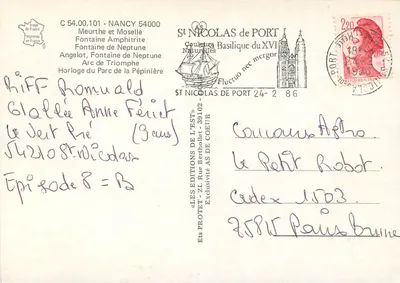 C 54.00.101 - NANCY 54000
Meurthe et Moselle
Fontaine Amphitrite
Fontaine de Neptune
Angelot, Fontaine de Neptune
Arc de Triomphe
Horloge du Parc de la Pépinière
St NICOLAS de PORT
Couleurs Naturelles
Basilique du XVI
Fluctuo nec mergor
ST NICOLAS DE PORT 24-2 86
2,20
RIFF Romuald
Anne
(9 ans)
54210 St Nicolas
Episode 8 = B
«LES EDITIONS DE L'EST»
Ets PROTET - ZI, Rue Berthollet - 39102
Exclusivité AS DE COEUR
Le Petit Robot
Cedex 1503
75815 Paris Brune